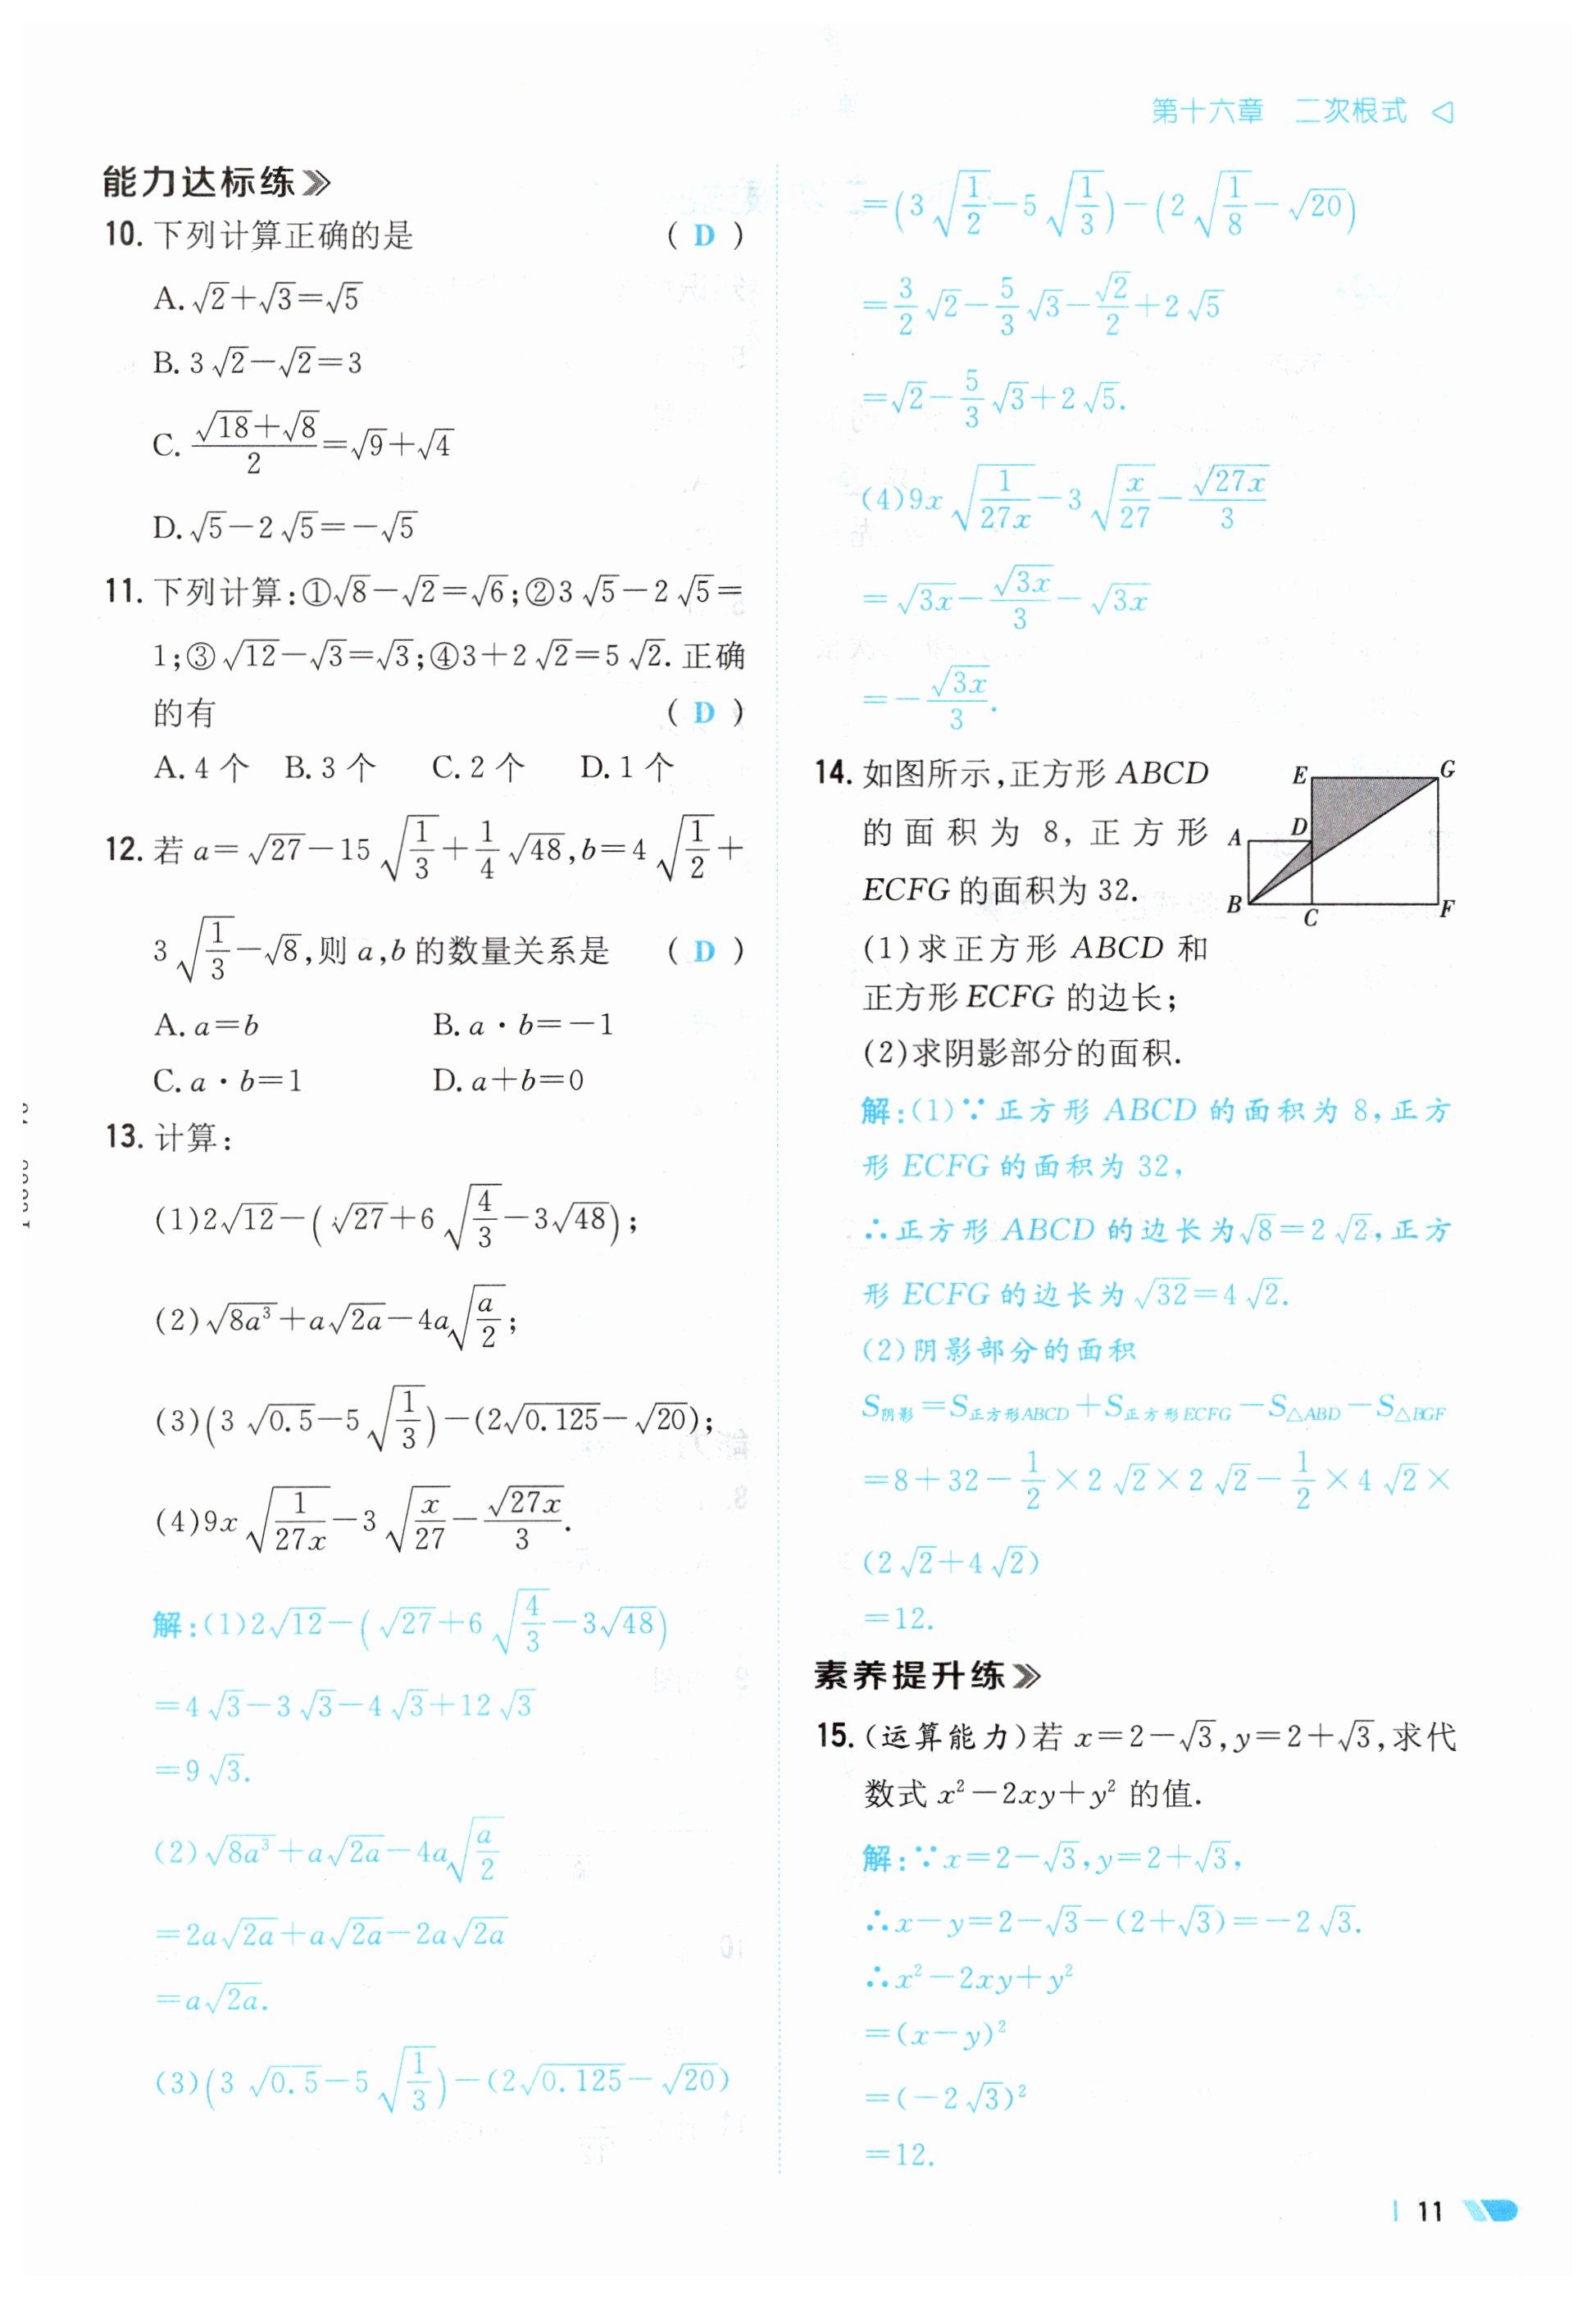 第十六章 二次根式
能力达标练
10. 下列计算正确的是 ( D )
A. √2+√3=√5
B. 3√2-√2=3
C. (√18+√8)/2=√9+√4
D. √5-2√5=-√5
11. 下列计算:①√8-√2=√6;②3√5-2√5=
1;③√12-√3=√3;④3+2√2=5√2. 正确
的有 ( D )
A. 4个 B. 3个 C. 2个 D. 1个
12. 若 a=√27-15√(1/3)+1/4√48,b=4√(1/2)+
3√(1/3)-√8,则 a,b 的数量关系是 ( D )
A. a=b B. a·b=-1
C. a·b=1 D. a+b=0
13. 计算:
(1)2√12-(√27+6√(4/3)-3√48);
(2)√(8a³)+a√(2a)-4a√(a/2);
(3)(3√0.5-5√(1/3))-(2√0.125-√20);
(4)9x√(1/(27x))-3√(x/27)-√(27x)/3.
解:(1)2√12-(√27+6√(4/3)-3√48)
=4√3-3√3-4√3+12√3
=9√3.
(2)√(8a³)+a√(2a)-4a√(a/2)
=2a√(2a)+a√(2a)-2a√(2a)
=a√(2a).
(3)(3√0.5-5√(1/3))-(2√0.125-√20)
=(3√(1/2)-5√(1/3))-(2√(1/8)-√20)
=3/2√2-5/3√3-√2/2+2√5
=√2-5/3√3+2√5.
(4)9x√(1/(27x))-3√(x/27)-√(27x)/3
=√(3x)-√(3x)/3-√(3x)
=-√(3x)/3.
14. 如图所示,正方形 ABCD
的面积为 8,正方形
ECFG 的面积为 32.
(1)求正方形 ABCD 和
正方形 ECFG 的边长;
(2)求阴影部分的面积.
E G
A D
B C F
解:(1)∵正方形 ABCD 的面积为 8,正方
形 ECFG 的面积为 32,
∴正方形 ABCD 的边长为√8=2√2,正方
形 ECFG 的边长为√32=4√2.
(2)阴影部分的面积
S阴影=S正方形ABCD+S正方形ECFG-S△ABD-S△BGF
=8+32-1/2×2√2×2√2-1/2×4√2×
(2√2+4√2)
=12.
素养提升练
15. (运算能力)若 x=2-√3,y=2+√3,求代
数式 x²-2xy+y² 的值.
解:∵x=2-√3,y=2+√3,
∴x-y=2-√3-(2+√3)=-2√3.
∴x²-2xy+y²
=(x-y)²
=(-2√3)²
=12.
11